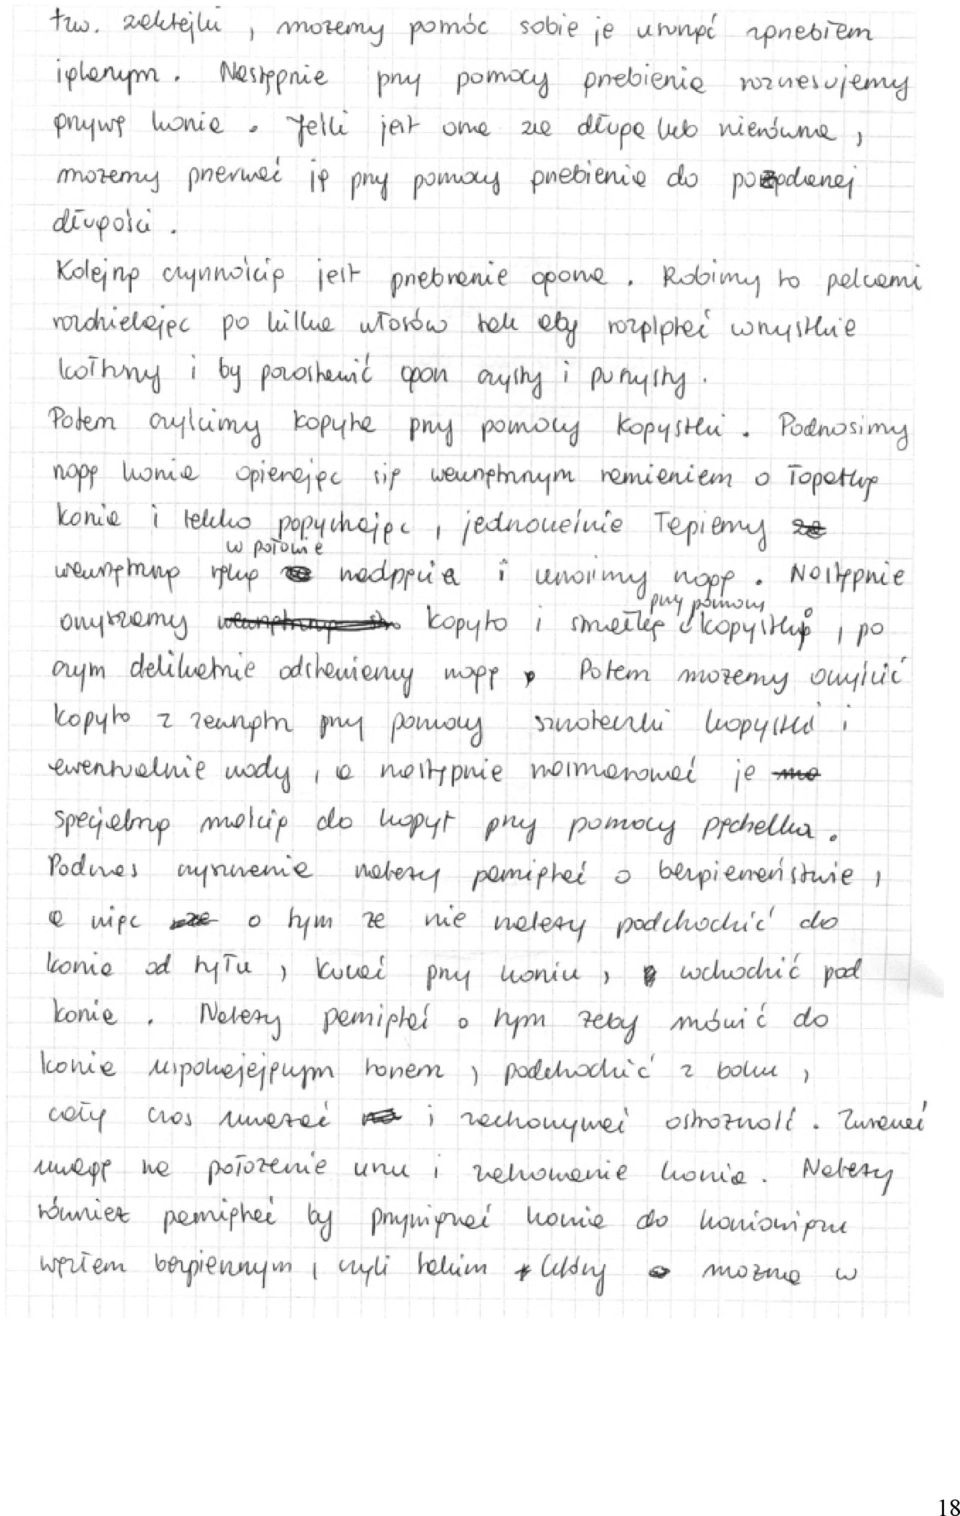 tzw. zaklejki, możemy pomóc sobie je usunąć zgrzebłem
iglanym. Następnie przy pomocy grzebienia rozczesujemy
grzywę konia. Jeśli jest ona za długa lub nierówna,
możemy przerwać ją przy pomocy grzebienia do pożądanej
długości.
Kolejną czynnością jest przebranie ogona. Robimy to palcami
rozdzielając po kilka włosów tak aby rozplątać wszystkie
kołtuny i by pozostawić ogon czysty i puszysty.
Potem czyścimy kopyta przy pomocy kopystki. Podnosimy
nogę konia opierając się wewnętrznym ramieniem o łopatkę
konia i lekko popychając, jednocześnie łapiemy
w połowie
wewnętrzną ręką nadpęcia i unosimy nogę. Następnie
przy pomocy
oczyszczamy kopyto i strzałkę kopystką, po
czym delikatnie odstawiamy nogę. Potem możemy oczyścić
kopyto z zewnątrz przy pomocy szczoteczki kopystki i
ewentualnie wody, a następnie nasmarować je
specjalną maścią do kopyt przy pomocy pędzelka.
Podczas czyszczenia należy pamiętać o bezpieczeństwie,
a więc o tym że nie należy podchodzić do
konia od tyłu, kucać przy koniu, wchodzić pod
konia. Należy pamiętać o tym żeby mówić do
konia uspokajającym tonem, podchodzić z boku,
cały czas uważać i zachowywać ostrożność. Zwracać
uwagę na położenie uszu i zachowanie konia. Należy
również pamiętać by przywiązać konia do koniowiązu
węzłem bezpiecznym, czyli takim który można w
18